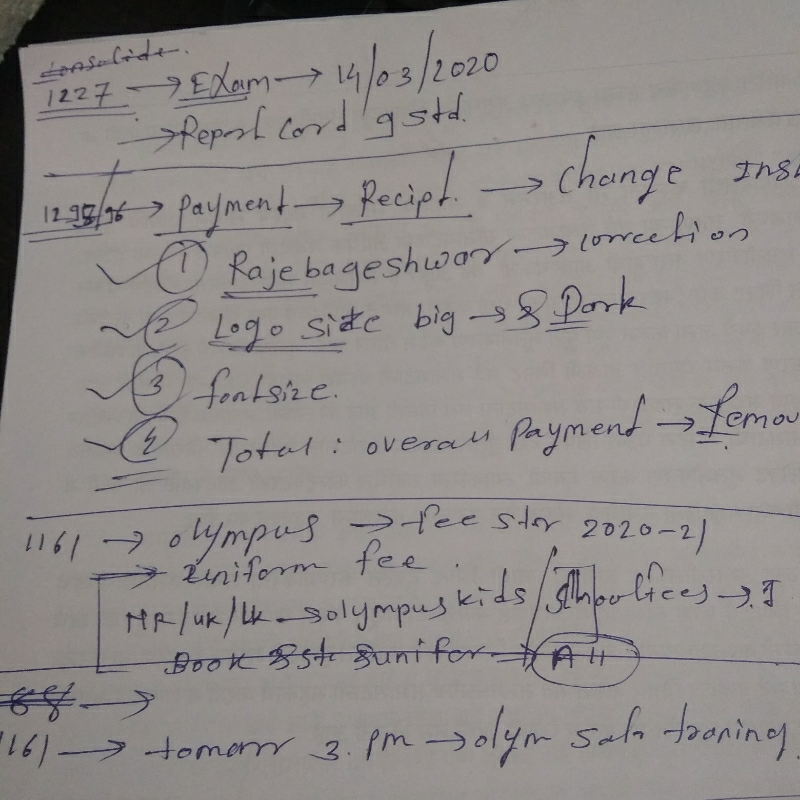 consolide.
1227 → Exam → 14/03/2020
→ Report Card 9 std.
1295/96 → payment → Recipt. → Change
① Rajebageshwar → correction
② Logo size big → & Dark
③ fontsize.
④ Total : overall payment →
1161 → olympus → fee str 2020-21
→ uniform fee.
NR/UK/LK → olympus kids /
Book & st & unifor → All
1161 → tomorr 3. pm → olym traning